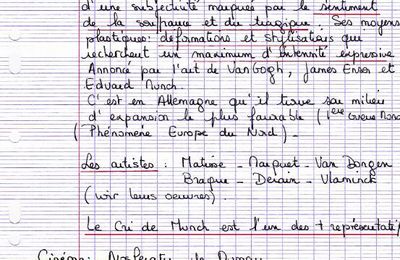 d'une subjectivité marquée par le sentiment
de la souffrance et du tragique. Ses moyens
plastiques: déformations et stylisations qui
recherchent un maximum d'intensité expressive.
Annoncé par l'art de Van Gogh, James Ensor et
Edvard Munch.
C'est en Allemagne qu'il trouve son milieu
d'expansion le plus favorable (1ère Guerre
(Phénomène Europe du Nord)_
Les artistes : Matisse _ Marquet _ Van Dongen
Braque _ Derain _ Vlaminck
(voir leurs oeuvres).
Le Cri de Munch est l'un des + représentatifs
Cinéma: Nosferatu de Murnau